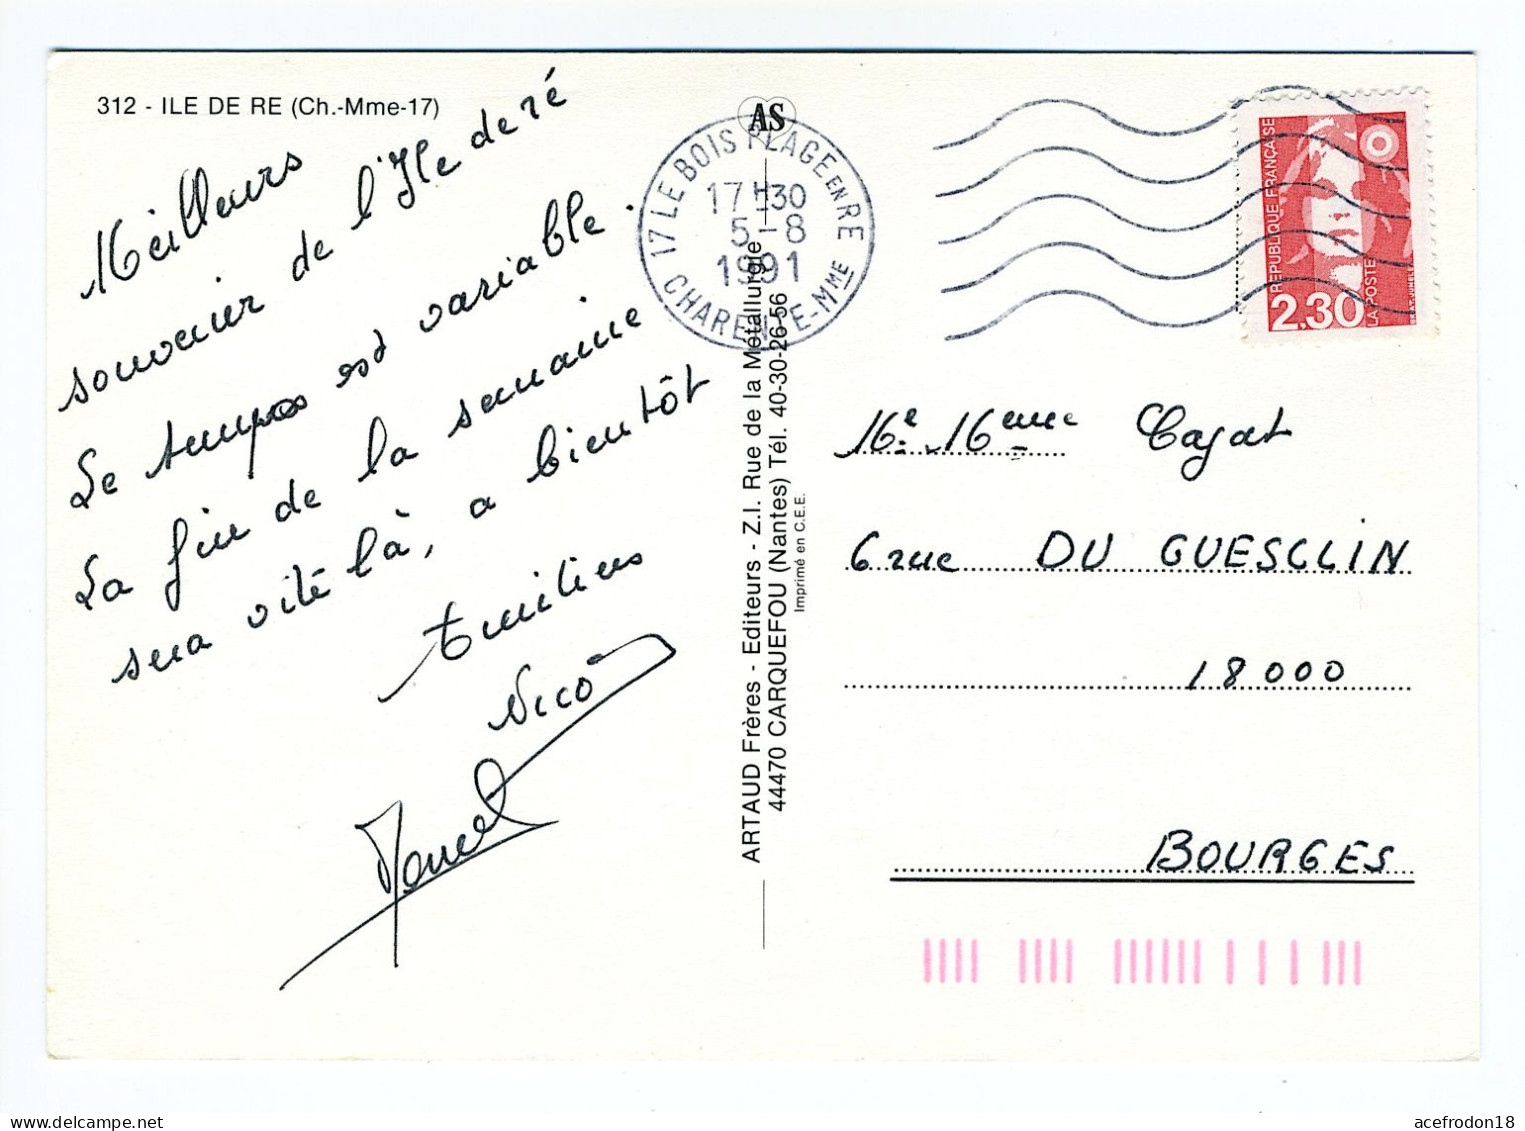 312 - ILE DE RE (Ch.-Mme-17)
Meilleurs
souvenir de l'Ile de ré
Le temps est variable.
La fin de la semaine
sera vite là, a bientôt
Nico
AS
17 LE BOIS PLAGE EN RE
17H30
5-8
1991
CHARENTE-MME
ARTAUD Frères - Editeurs - Z.I. Rue de la Métallurgie
44470 CARQUEFOU (Nantes) Tél. 40-30-26-56
Imprimé en C.E.E.
REPUBLIQUE FRANÇAISE
2,30
LA POSTE
Mr. Meme Cajat
6 rue DU GUESCLIN
18000
BOURGES
acefrodon18